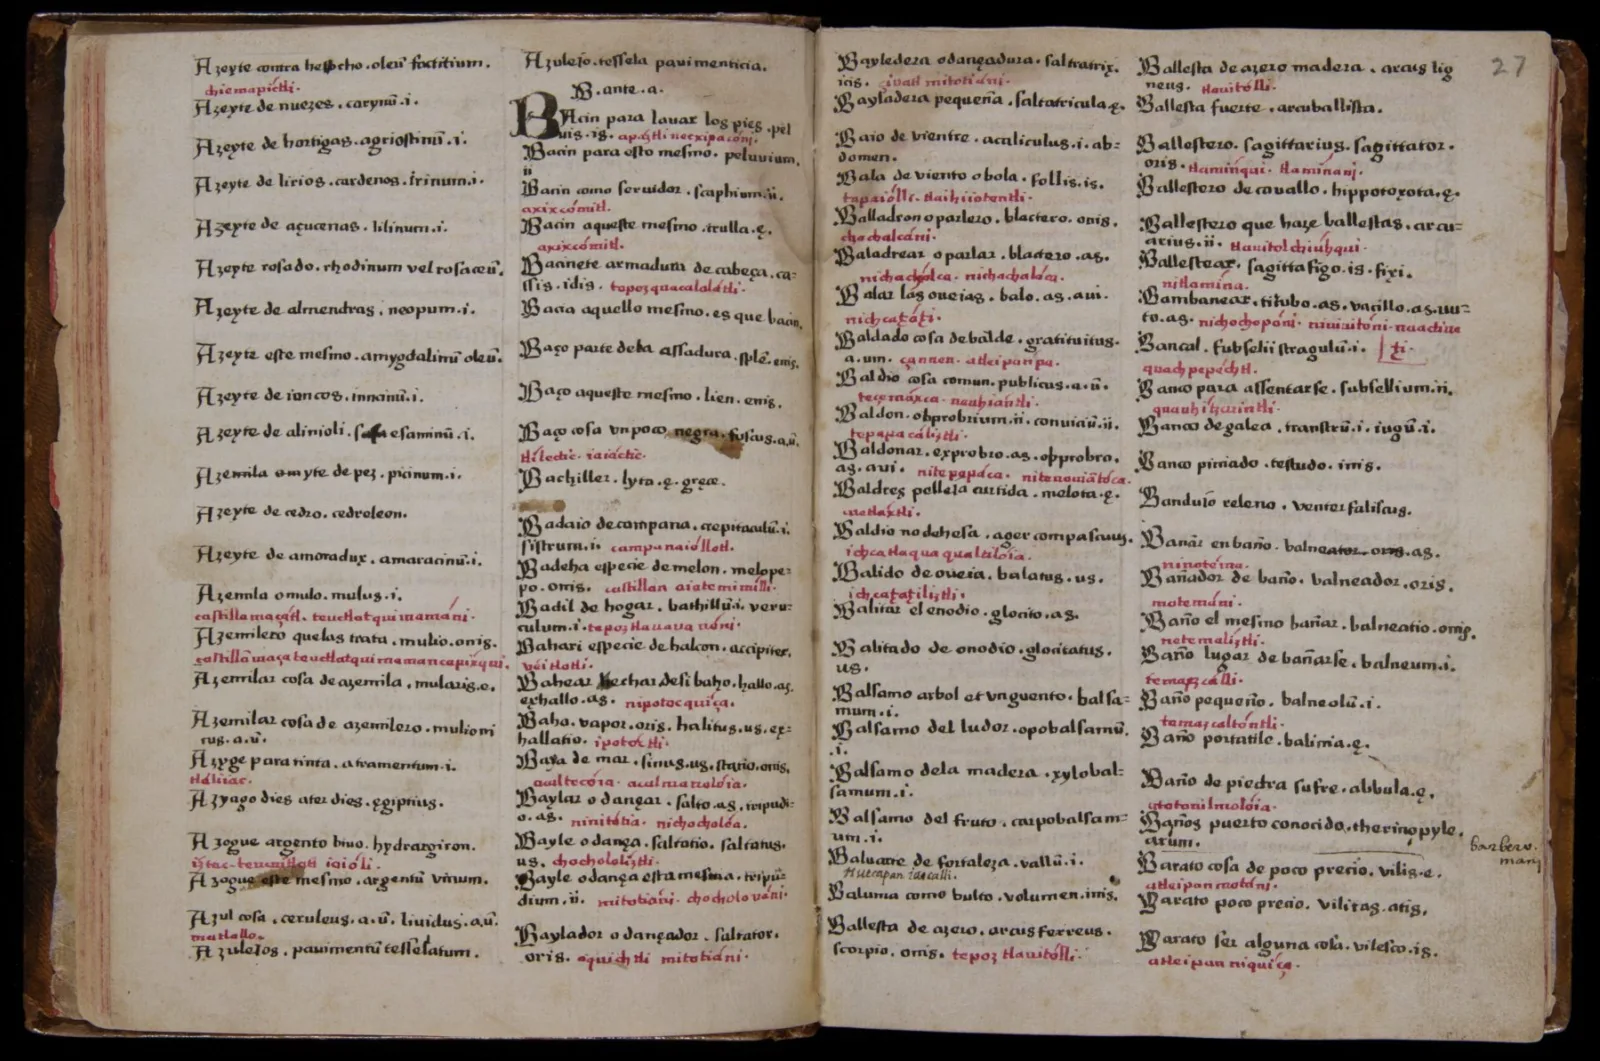 Azeyte contra hecho. oleū factitium.
chiemapictli.
Azeyte de nuezes. carynū.i.
Azeyte de hortigas. agriostinū.i.
Azeyte de lirios. cardenos. irinum.i.
Azeyte de açucenas. lilinum.i.
Azeyte rosado. rhodinum vel rosaceū.
Azeyte de almendras. neopum.i.
Azeyte este mesmo. amygdalinū oleū.
Azeyte de iuncos. iuncinū.i.
Azeyte de alinioli. sesaminū.i.
Azemila azeyte de pez. picinum.i.
Azeyte de cedro. cedreleon.
Azeyte de amoradux. amaracinū.i.
Azemila o mulo. mulus.i.
castillamaçātl. teuctlatquinamáni.
Azemilero quelas trata. mulio. onis.
castillāmaça teuctlatqui
Azemilar cosa de azemila. mularis.e.
Azemilar cosa de azemilero. mulioni
cus. a. ū.
Azyge para tinta. atramentum.i.
tlaliiac.
Azyago dies ater dies. ęgiptius.
Azogue argento biuo. hydrargiron.
iztac. teucuitlatl ioióli.
Azogue este mesmo. argentū viuum.
Azul cosa. ceruleus. a. ū. liuidus. a. ū.
matlallo.
Azulejos. pauimentū tesselatum.
Azulejo. tessela pauimenticia.
B. ante. a.
BAcin para lauar los pies. pel
uis. is. apaztli necxipacóni.
Bacin para esto mesmo. peluuium.
ii
Bacin como seruidor. scaphium.ii.
axixcómitl.
Bacin aqueste mesmo. trulla. ę.
axixcómitl.
Bacinete armadura de cabeça. ca=
ssis. idis. tepozquacalalátli.
Bacia aquello mesmo. es que bacin.
Baço parte dela assadura. splē. enis.
Baço aqueste mesmo. lien. enis.
Baço cosa vn poco negra. fuscus. a. ū.
tlilectic. iaiáctic.
Bachiller. lyra. ę. gręce.
Badaio de campana. crepitaculū.i.
sistrum.i. campanaióllotl.
Badeha especie de melon. melope=
po. onis. castillan aiotemimilli.
Badil de hogar. bathillū.i. veru=
culum.i. tepoztlauauanóni.
Bahari especie de halcon. accipiter.
véitlotli.
Bahear hechar desi baho. hallo. as.
exhallo. as. nipotocquíça.
Baho. vapor. oris. halitus. us. ex=
hallatio. ipotóctli.
Baya de mar. sinus. us. statio. onis.
acaltecóia. acalmanalóia.
Baylar o dançar. salto. as. tripudi=
o. as. ninitótia. nichocholóa.
Bayle o dança. saltatio. saltatus.
us. chochololíztli.
Bayle o dança esta mesma. tripu=
dium. ii. mitotiáni. chocholo uáni.
Baylador o dançador. saltator.
oris. oquichtli mitotiáni.
Bayledera o dançadura. saltratrix.
icis. ciuatl mitotiáni.
Bayladera pequeña. saltatricula. ę.
Baio de vientre. acaliculus.i. ab=
domen.
Bala de viento o bola. follis. is.
tapaiólli. tlaihiiotentli.
Balladron o parlero. blactero. onis.
chochalcáni.
Baladrear o parlar. blactero. as.
nichachálca. nichachaláni.
Balar las ouejas. balo. as. aui.
nichcatzátzi.
Baldado cosa de balde. gratituitus.
a. um. çannen. atleipanpa.
Baldio cosa comun. publicus. a. ū.
tecemáxca. nouhiántli.
Baldon. opprobrium.ii. conuiciū.ii.
tepapacalíztli.
Baldonar. exprobro. as. opprobro.
as. aui. nitepapáca.
Baldres pelleja curtida. melota. ę.
Baldio no dehesa. ager compascuus.
ichcatlaqua qualtilóia.
Balido de oueia. balatus. us.
ichcatzatzilíztli.
Balitar el enodio. glocito. as.
Balitado de onodio. glocitatus.
us.
Balsamo arbol et vnguento. balsa=
mum.i.
Balsamo del ludor. opobalsamū.
.i.
Balsamo dela madera. xylobal=
samum.i.
Balsamo del fruto. carpobalsam=
um.i.
Baluarte de fortaleza. vallū.i.
Baluma como bulto. volumen. inis.
Ballesta de azero. arcus ferreus.
scorpio. onis. tepoz tlauitólli.
27
Ballesta de azero madera. arcus lig
neus. tlauitólli.
Ballesta fuerte. arcuballista.
Ballestero. sagittarius. sagittator.
oris. tlaminqui. tlamináni.
Ballestero de cauallo. hippotoxota. ę.
Ballestero que haze ballestas. arcu=
arius.ii. tlauitolchiúhqui.
Ballestear. sagittafigo. is. fixi.
nitlamína.
Bambanear. titubo. as. vacillo. as. nu=
to. as. nichochopóni.
Bancal. subselii stragulū.i.
quachpepéchtl.
Banco para assentarse. subsellium.ii.
Banco de galea. transtrū.i. iugū.i.
Banco pinjado. testudo. inis.
Bandujo releno. venter faliscus.
Bañar en baño. as.
ninotéma.
Bañador de baño. balneador. oris.
motemáni.
Baño el mesmo bañar. balneatio. onis.
netemalíztli.
Baño lugar de bañarse. balneum.i.
temazcálli.
Baño pequeño. balneolū.i.
temazcaltóntli.
Baño portatile. balinia. ę.
Baño de piedra sufre. abbula. ę.
atotonilmolóia.
Baños puerto conocido. therinopyle.
arum.
barbero.
Barato cosa de poco precio. vilis. e.
atleipanmotáni.
Barato poco precio. vilitas. atis.
Barato ser alguna cosa. vilesco. is.
atleipan niquíça.